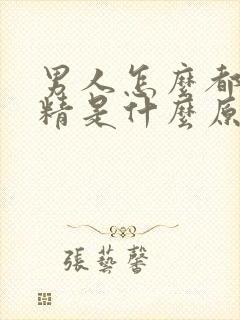 男人怎麼都
精是什麼原
張藝馨